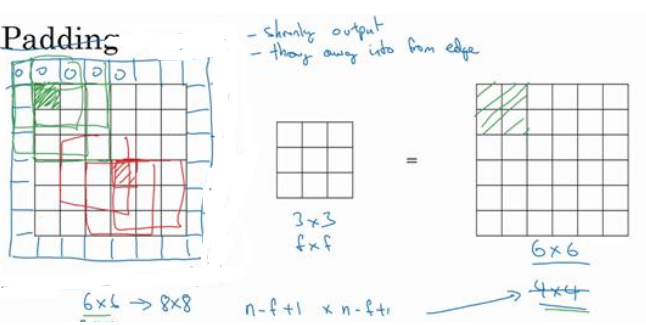 Padding
- shrinky output
- throw away info from edge
0 0 0 0 0
3×3
f×f
=
6×6
4×4
6×6 → 8×8
n-f+1 × n-f+1